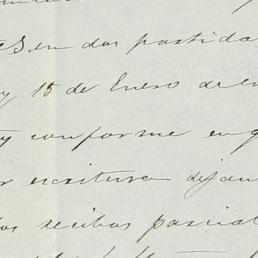 es en dos partida
y 15 de Enero de
y conforme en q
escritura dejan
los recibos parcial